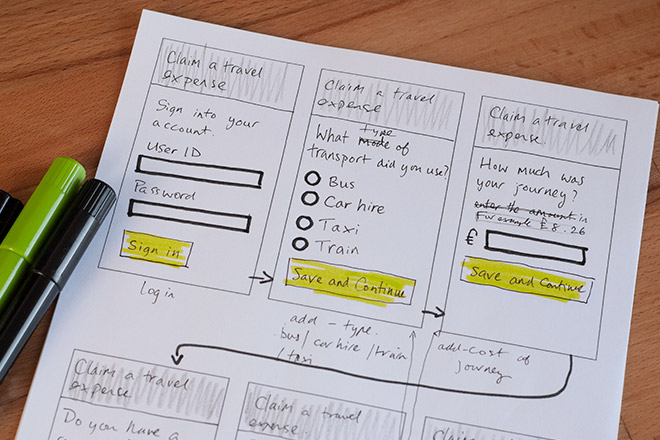 Claim a travel
expense
Sign into your
account.
User ID
Password
Sign in
Log in
Claim a travel
expense
type
What mode of
transport did you use?
Bus
Car hire
Taxi
Train
Save and Continue
add - type.
bus / car hire / train
/ taxi
Claim a travel
expense.
How much was
your journey?
enter the amount in
For example £8.26
£
Save and Continue
add-cost of
journey
Claim a travel
expense
Do you have a
Claim a travel
expense.
Claim a travel